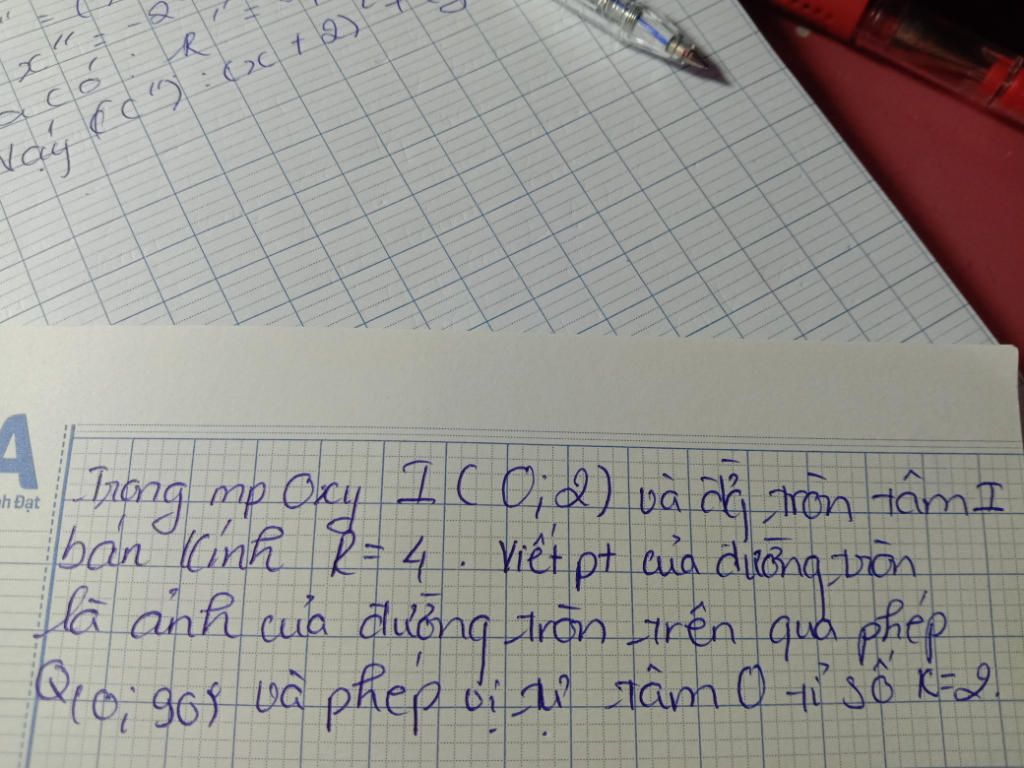 x" = -2
có : R
Vậy (C") : (x + 2)
A
nh Đạt
Trong mp Oxy I ( 0; 2) và đg tròn tâm I
bán kính R = 4 . Viết pt của đường tròn
là ảnh của đường tròn trên qua phép
Q(0; 90) và phép vị tự tâm O tỉ số k=2.